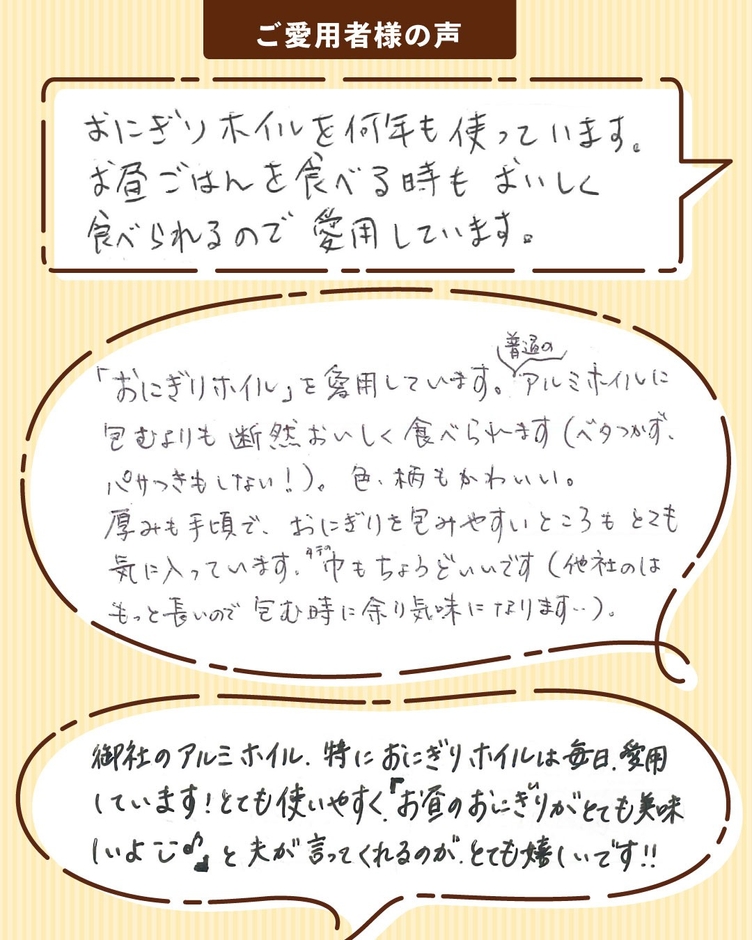 ご愛用者様の声
おにぎりホイルを何年も使っています。
お昼ごはんを食べる時もおいしく
食べられるので愛用しています。
普通の
「おにぎりホイル」を愛用しています。アルミホイルに
包むよりも断然おいしく食べられます(ベタつかず、
パサつきもしない!)。色、柄もかわいい。
厚みも手頃で、おにぎりを包みやすいところもとても
気に入っています。タテの巾もちょうどいいです(他社のは
もっと長いので包む時に余り気味になります…)。
御社のアルミホイル、特におにぎりホイルは毎日、愛用
しています!とても使いやすく、『お昼のおにぎりがとても美味
しいよ〜♪』と夫が言ってくれるのが、とても嬉しいです!!